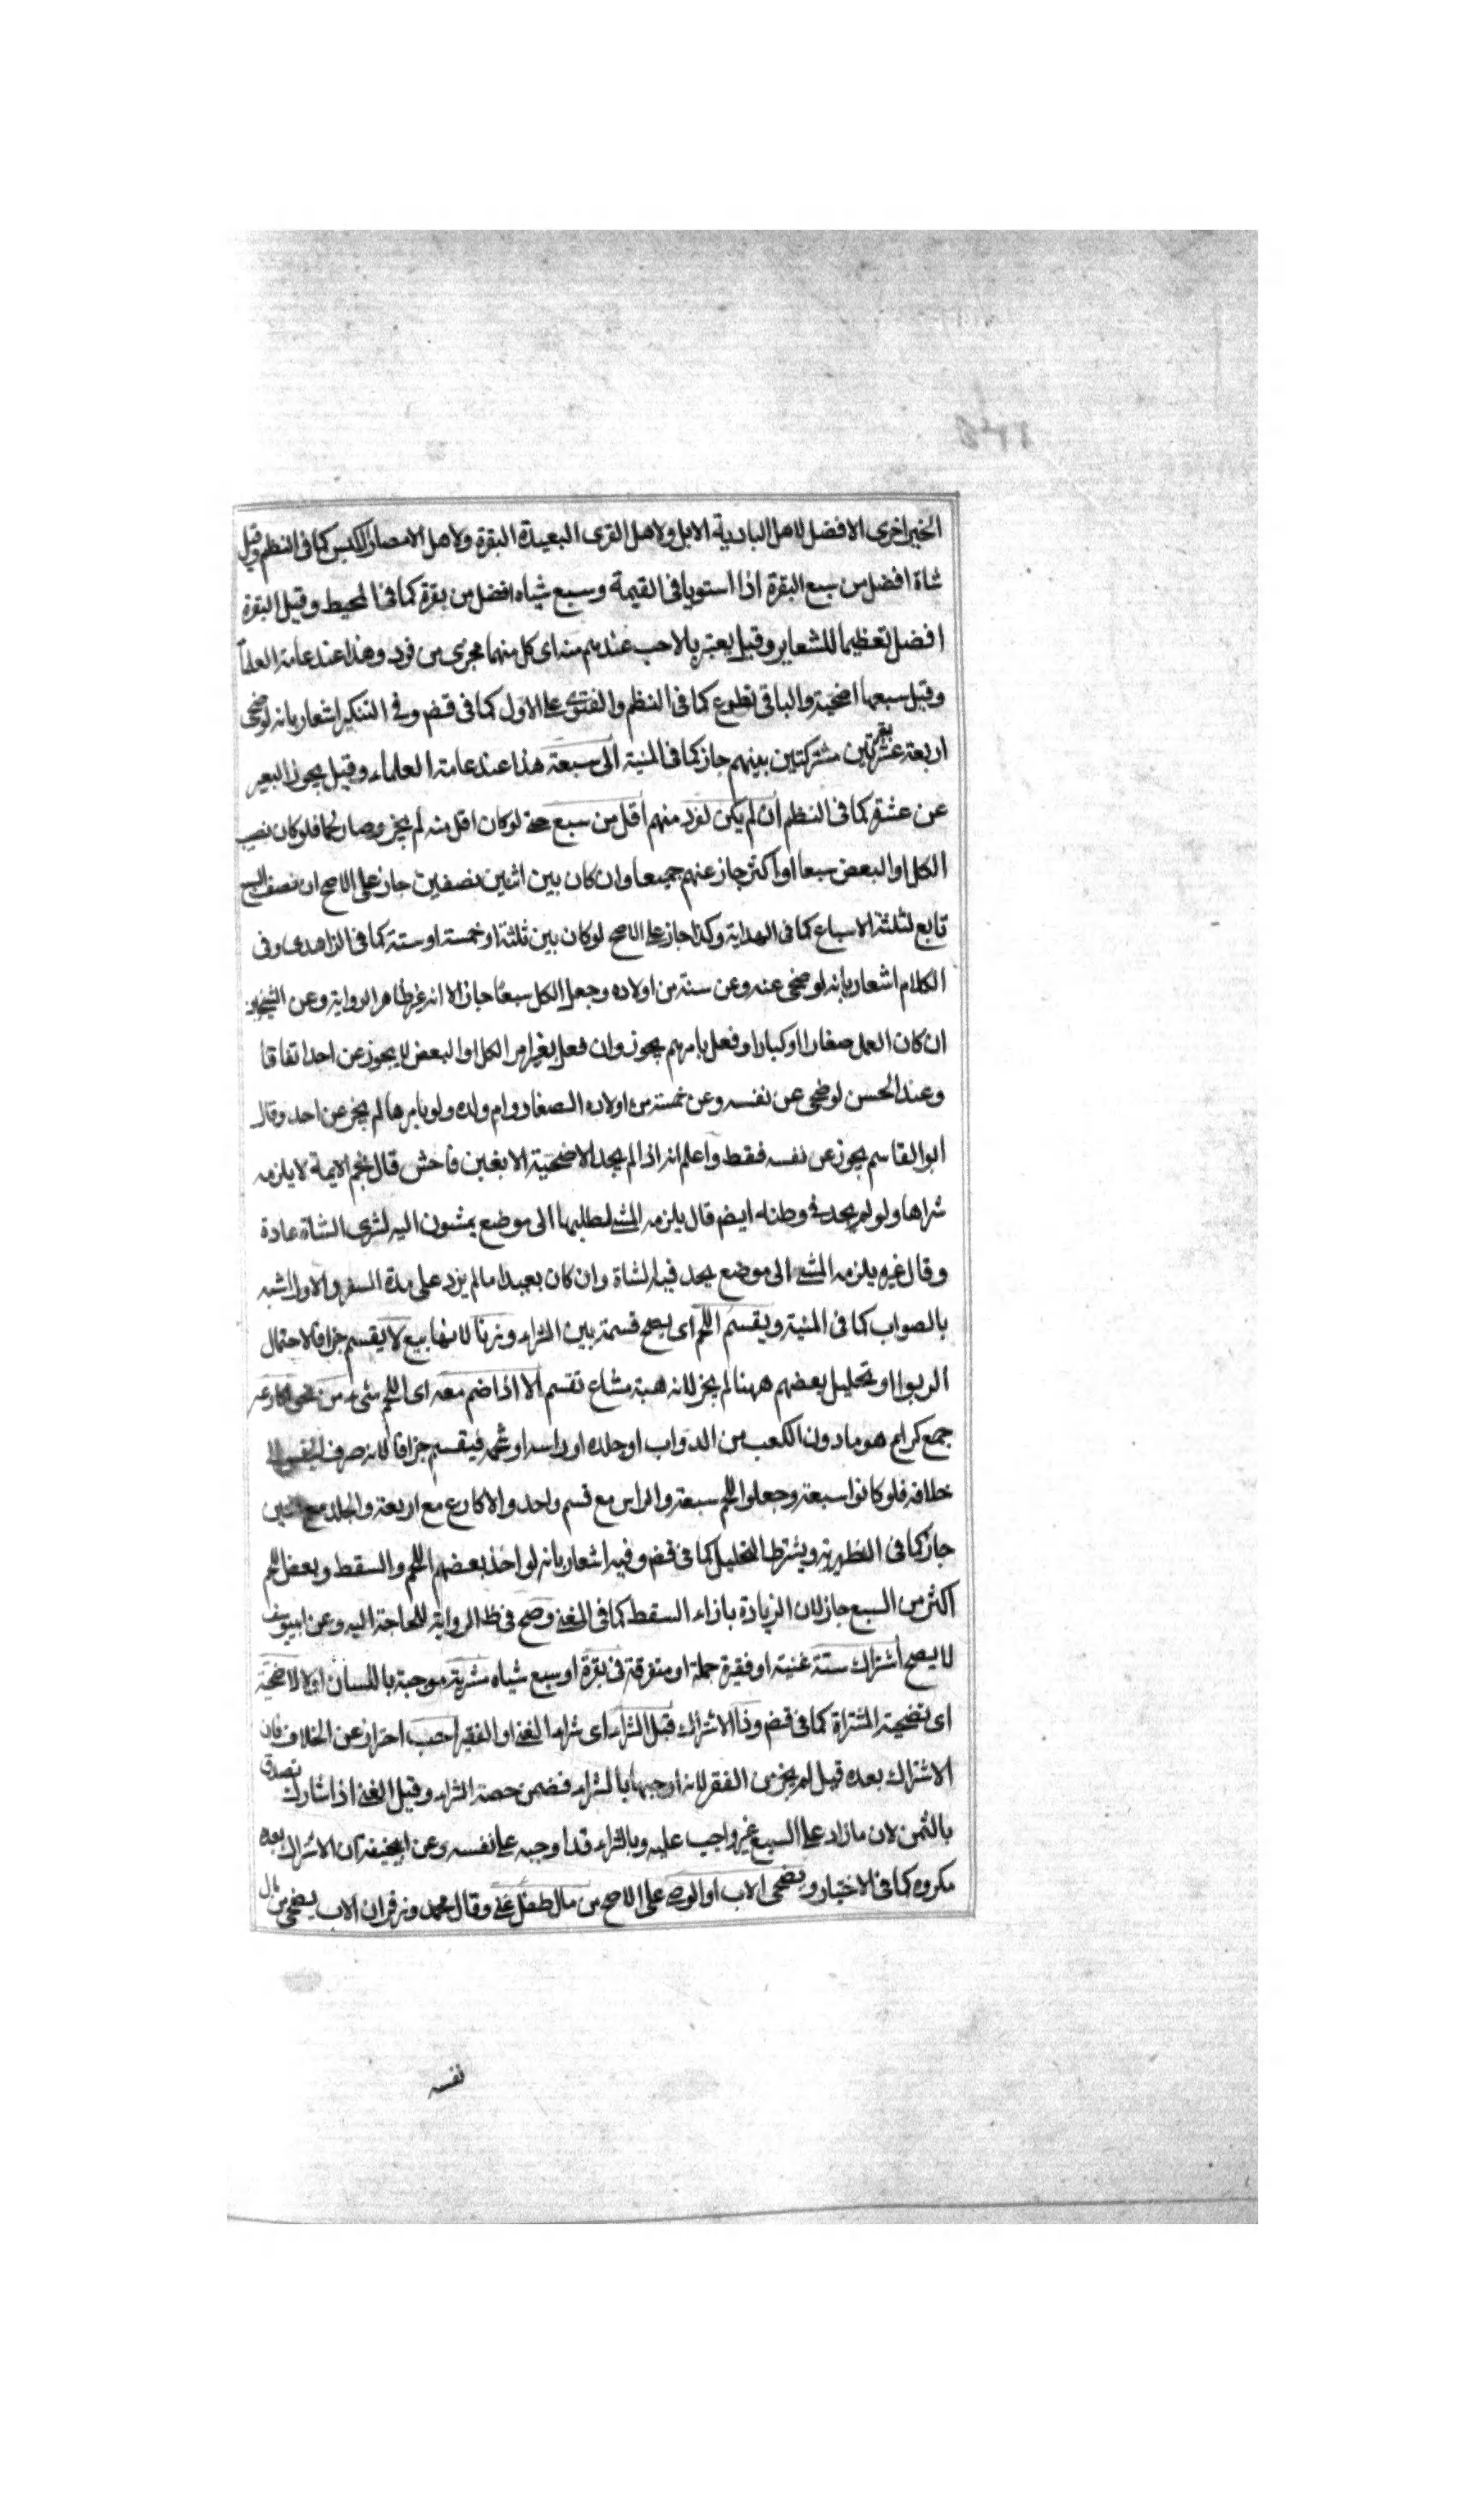 الافضل لاهل البادية الابل ولاهل القرى البعيدة البقرة ولاهل الامصار الكبش كما فى النظم وقيل
شاة افضل من سبع البقرة اذا استويا فى القيمة وسبع شياه افضل من بقرة كما فى المحيط وقيل البقرة
افضل تعظيما للشعاير وقيل يعتبر بالاحب عندهم منه اى كل منهما مجزى من فرد وهذا عند عامة العلماء
وقيل سبعها اضحية والباقى تطوع كما فى النظم والفتوى على الاول كما فى قضم وفى التنكير اشعار بانه لو ضحى
اربعة عشر بقرتين مشتركتين بينهم جاز كما فى المنية الى سبعة هذا عند عامة العلماء وقيل يجوز البعير
عن عشرة كما فى النظم ان لم يكن لفرد منهم اقل من سبع حتى لو كان اقل منه لم يجز وصار لحما فلو كان نصيب
الكل او البعض سبعا او اكثر جاز عنهم جميعا وان كان بين اثنين نصفين جاز على الاصح ان نصف السبع
تابع لثلثة الاسباع كما فى الهداية وكذا جاز على الاصح لو كان بين ثلثة او خمسة او ستة كما فى الزاهدى وفى
الكلام اشعار بانه لو ضحى عنه وعن ستة من اولاده وجعل الكل سبعا جاز الا انه غير ظاهر الرواية وعن الشيخين
ان كان العمل صغارا او كبارا وفعل بامرهم يجوز وان فعل بغير امر الكل او البعض لا يجوز عن احد اتفاقا
وعند الحسن لو ضحى عن نفسه وعن خمسة من اولاده الصغار وام ولده ولو بامرها لم يجز عن احد وقال
ابو القاسم يجوز عن نفسه فقط واعلم انه اذا لم يجد الاضحية الا بغبن فاحش قال نجم الايمة لا يلزمه
شراها ولو لم يجد فى وطنه ايضم قال يلزمه المشى لطلبها الى موضع يمشون اليه لشرى الشاة عادة
وقال غيره يلزمه المشى الى موضع يجد فيه الشاة وان كان بعيدا ما لم يزد على مدة السفر والاول اشبه
بالصواب كما فى المنية ويقسم اللحم اى يصح قسمة بين الشراء وزنا لانها بيع لا يقسم جزافا لاحتمال
الربوا او تحليل بعضهم ههنا لم يجز لانه هبة مشاع تقسم الا اذا ضم معه اى اللحم شىء من نحو اكارعه
جمع كراع هو ما دون الكعب من الدواب او جلده او راسه او شحمه فيقسم جزافا لانه صرف الجنس الى
خلافه فلو كانوا سبعة وجعلوا اللحم سبعة والراس مع قسم واحد والاكارع مع اربعة والجلد مع
جاز كما فى الظهيرية ويشترط التحليل كما فى قضم وفيه اشعار بانه لو اخذ بعضهم اللحم والسقط وبعض اللحم
اكثر من السبع جاز لان الزيادة بازاء السقط كما فى المغنى وصح فى ظ الرواية للحاجة اليه وعن ابيوسف
لا يصح اشتراك ستة غنية او فقيرة جملة او متفرقة فى بقرة او سبع شياه مشرية موجبة باللسان اولا لاضحية
اى تضحية المشتراة كما فى قضم وذا الاشتراك قبل الشراء اى شراء الغنى او الفقير احب احتراز عن الخلاف فان
الاشتراك بعده قيل لم يجز من الفقير لانه اوجبها بالشراء فضمن حصة الشراء وقيل الغنى اذا شارك تصدق
بالثمن لان ما زاد على السبع غير واجب عليه وبالشراء قد اوجبه على نفسه وعن ابيحنيفة ان الاشتراك بعده
مكروه كما فى الاختيار ويضحى الاب او الوصى على الاصح من مال طفل غنى وقال محمد وزفر ان الاب يضحى من مال
نفسه